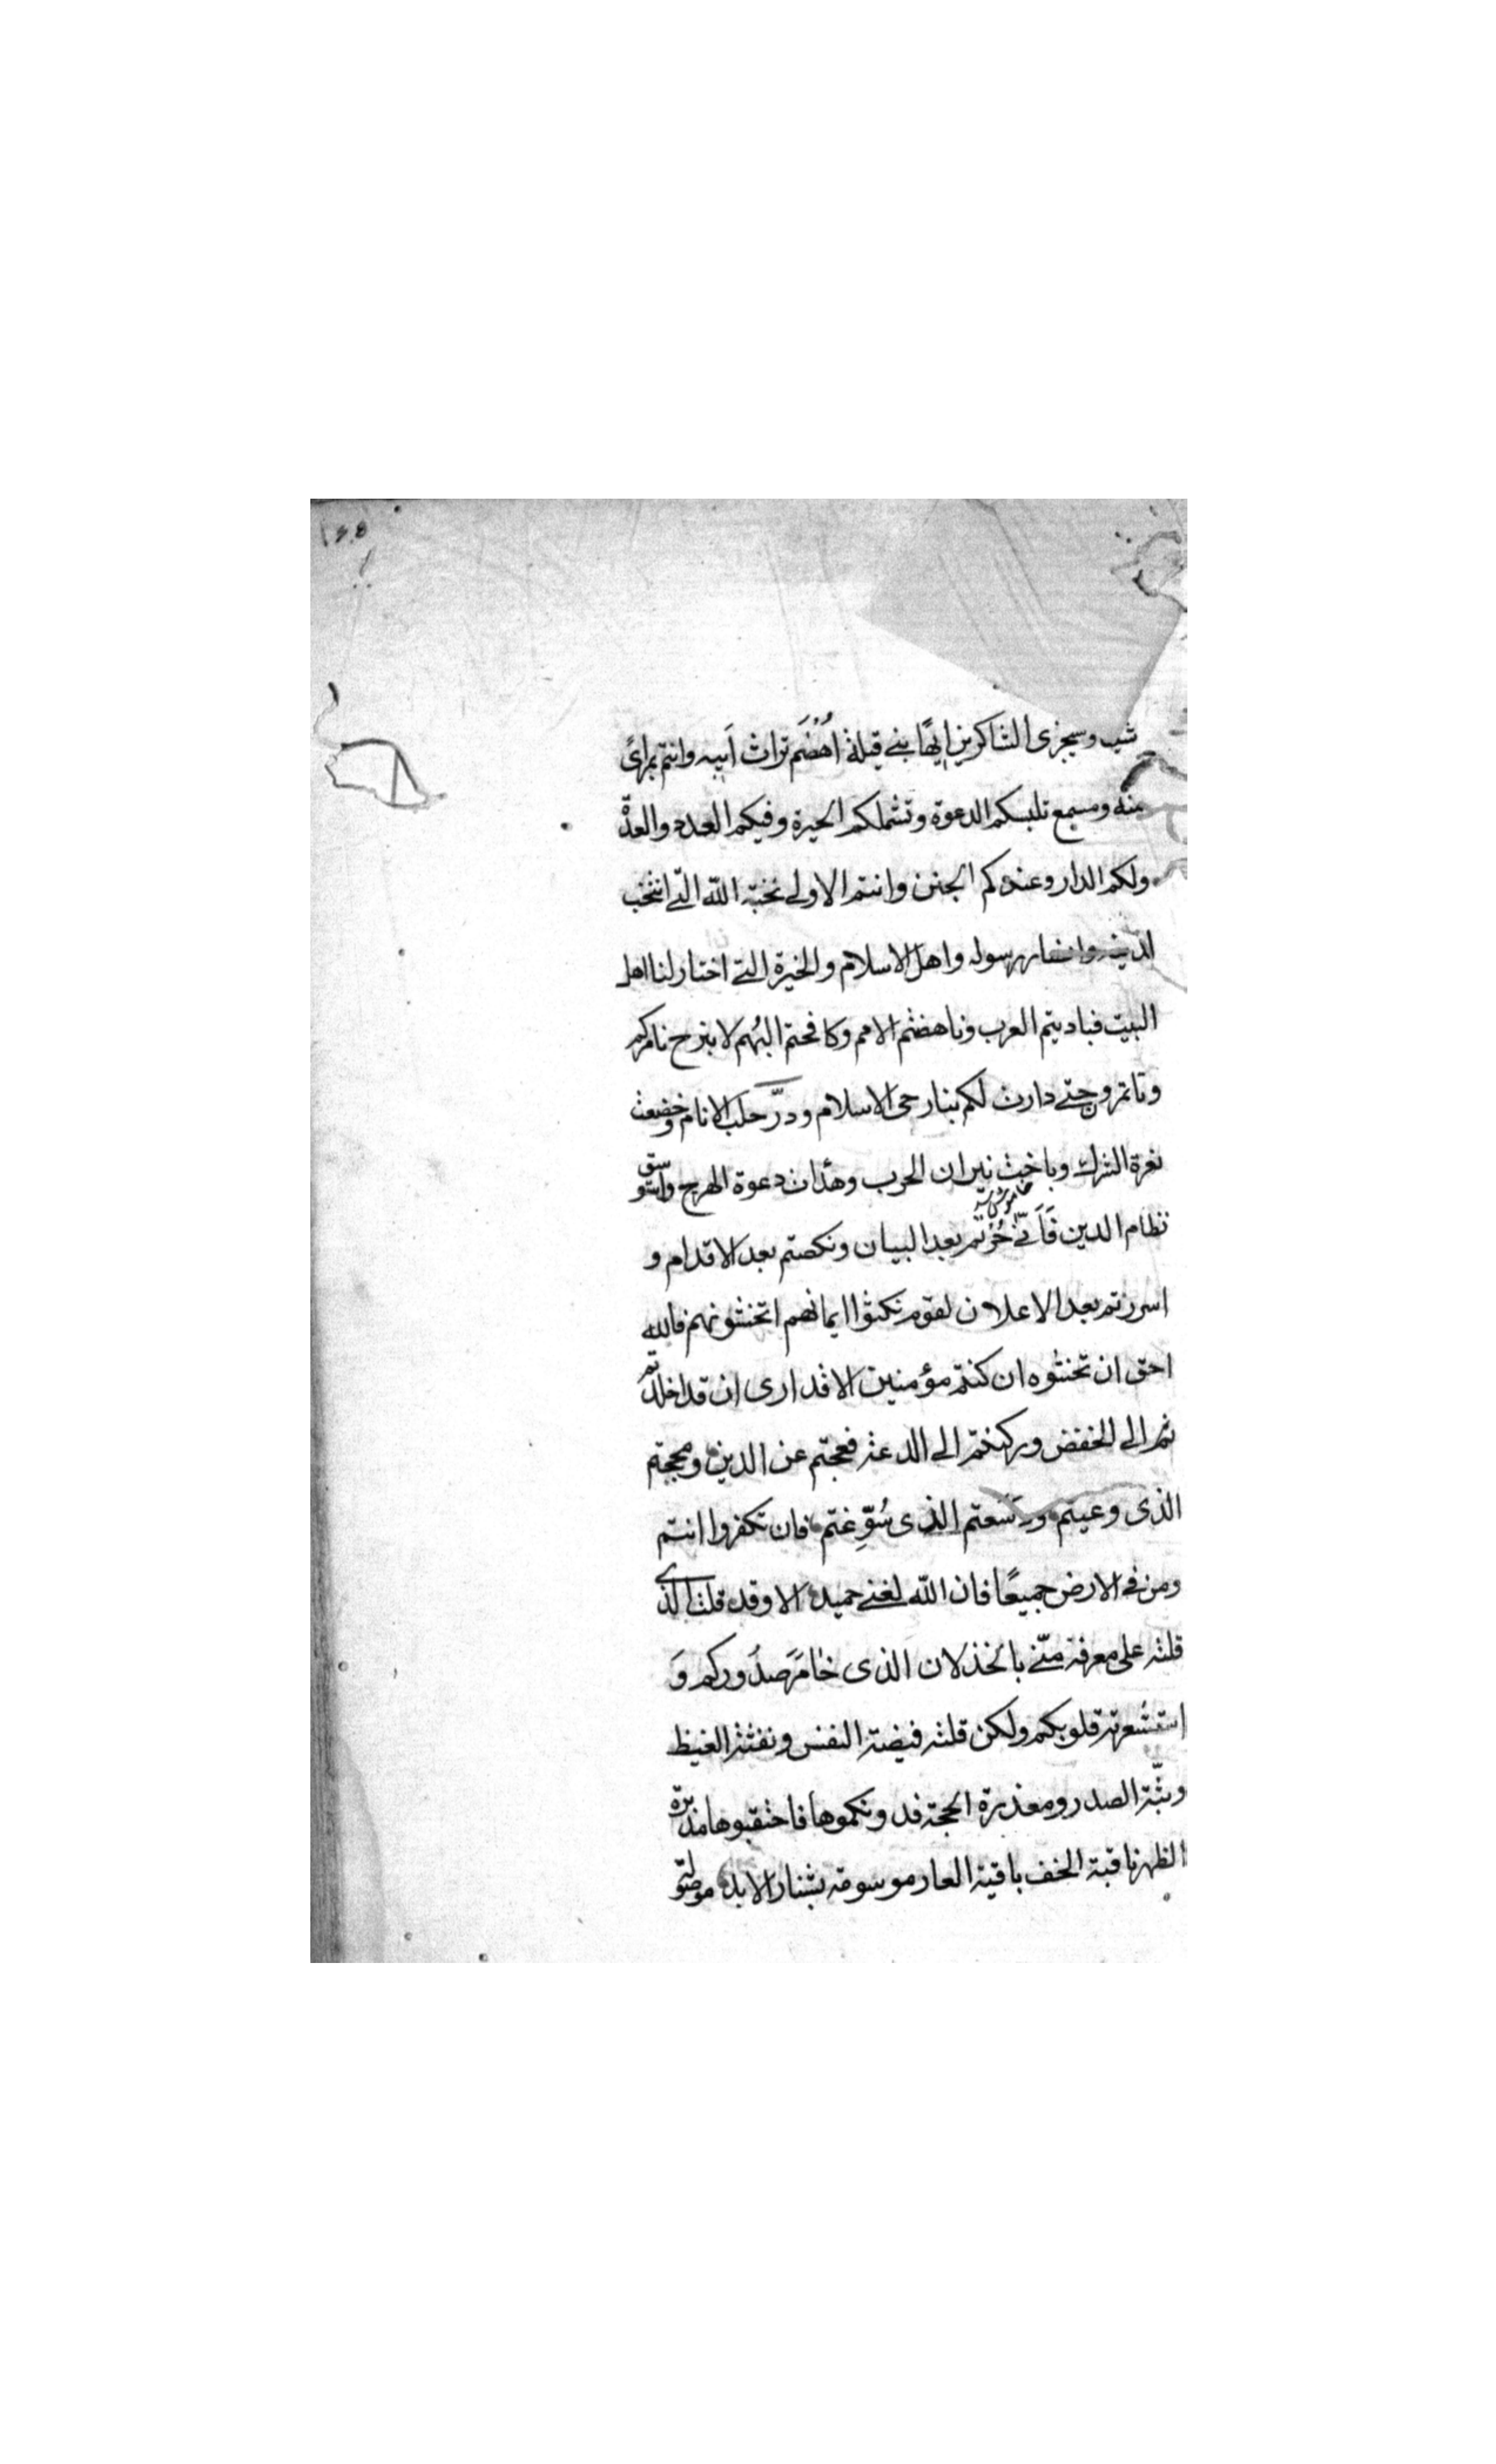 ۱۶۸
شیب وسیجزی الشاکرین ایهًا بنے قیلة اُهْضَم تراث اَبیه وانتم بمرائً
منه ومسمع تلبسکم الدعوة وتشملکم الحیرة وفیکم العدد والعدّة
ولکم الدار وعندکم الجنن وانتم الاولے نخبة الله الّتے انتخب
لدینه وانصار رسوله واهل الاسلام والخیرة التے اختار لنا اهل
البیت فبادیتم العرب وناهضتم الامم وکافحتم البُهم لا نبرح نامرکم
وتاتمرون حتّے دارت لکم بنا رحی الاسلام ودرّ حلب الانام وخضعت
نغرة الشرک وباخت نیران الحرب وهدأت دعوة الهرج واستوسق
نظام الدین فَاَنّے جُرْتم بعد البیان ونکصتم بعد الاقدام و
خاموش شد
اسررتم بعد الاعلان لقوم نکثوا ایمانهم اتخشونهم فالله
احق ان تخشوه ان کنتم مؤمنین الا قد اری ان قد اخلدتم
ثم الی الخفض ورکنتم الی الدعة فعجتم عن الدین ومججتم
الذی وعیتم ودسعتم الذی سُوِّغتم فان تکفروا انتم
ومن فے الارض جمیعًا فان الله لغنے حمید الا وقد قلت الذی
قلته علی معرفة منّے بالخذلان الذی خامَرَ صدُورکم وَ
استشعرته قلوبکم ولکن قلته فیضة النفس ونفثة الغیظ
وبثّة الصدر ومعذرة الحجة فدونکموها فاحتقبوها مدبرة
الظهر ناقبة الخف باقیة العار موسومة بشنار الابد موصولة